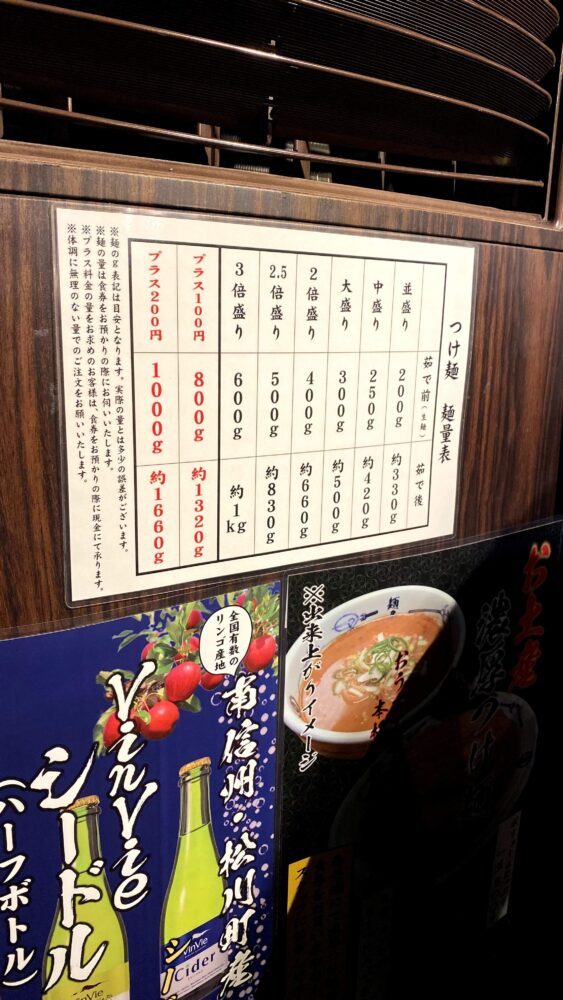 つけ麺 麺量表
茹で前(生麺) 茹で後
並盛り 200g 約330g
中盛り 250g 約420g
大盛り 300g 約500g
2倍盛り 400g 約660g
2.5倍盛り 500g 約830g
3倍盛り 600g 約1kg
プラス100円 800g 約1320g
プラス200円 1000g 約1660g
※麺のg表記は目安となります。実際の量とは多少の誤差がございます。
※麺の量は食券をお預かりの際にお伺いいたします。
※プラス料金の量をお求めのお客様は、食券をお預かりの際に現金にて承ります。
※体調に無理のない量でのご注文をお願いいたします。
お土産
※出来上がりイメージ
全国有数の
リンゴ産地
南信州・松川町産
VinVie
シードル
(ハーフボトル)
VinVie
Cider
VinVie